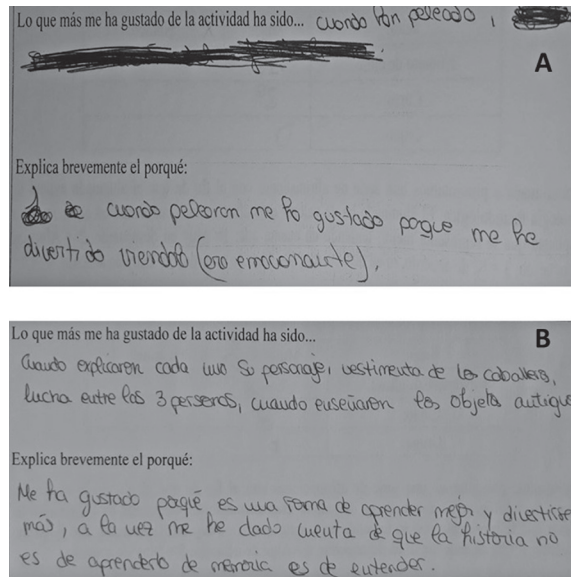 Lo que más me ha gustado de la actividad ha sido... cuando han peleado,
A
Explica brevemente el porqué:
cuando pelearon me ha gustado porque me he
divertido viendolo (era emocionante).
Lo que más me ha gustado de la actividad ha sido...
B
Cuando explicaron cada uno su personaje, vestimenta de los caballeros,
lucha entre las 3 personas, cuando enseñaron los objetos antiguo
Explica brevemente el porqué:
Me ha gustado porqué, es una forma de aprender mejor y divertirse
más, a la vez me he dado cuenta de que la historia no
es de aprenderlo de memoria es de entender.